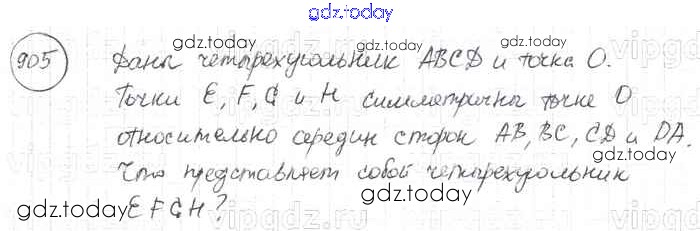 gdz.today
905 Даны четырехугольник ABCD и точка O.
gdz.today gdz.today
Точки E, F, G и H симметричны точке O
относительно середин сторон AB, BC, CD и DA.
gdz.today
Что представляет собой четырехугольник
gdz.today
EFGH?
gdz.today